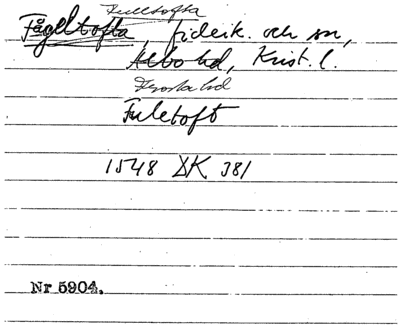 Fulltofta
Fågeltofta, fiderik. och sn,
Albo hd, Krist. l.
Frosta hd
Fuletoft
1548 DK 381
Nr 5904.